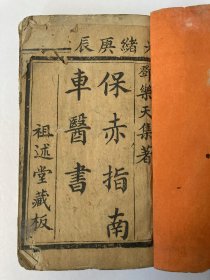 光緒庚辰
鄧樂天集著
保赤指南
車醫書
祖述堂藏板